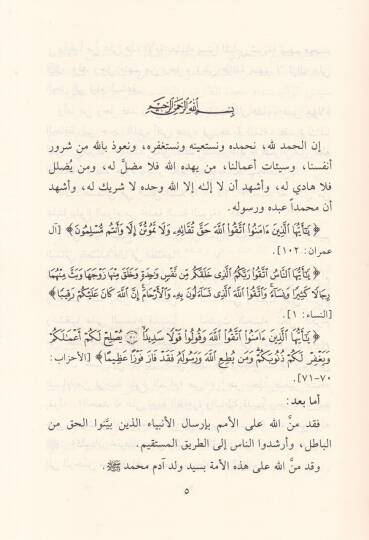 بِسْمِ اللَّهِ الرَّحْمَنِ الرَّحِيمِ
إن الحمد لله، نحمده ونستعينه ونستغفره، ونعوذ بالله من شرور
أنفسنا، وسيئات أعمالنا، من يهده الله فلا مضلَّ له، ومن يُضلل
فلا هادي له، وأشهد أن لا إلـٰه إلا الله وحده لا شريك له، وأشهد
أن محمداً عبده ورسوله.
﴿ يَٰٓأَيُّهَا ٱلَّذِينَ ءَامَنُوا۟ ٱتَّقُوا۟ ٱللَّهَ حَقَّ تُقَاتِهِۦ وَلَا تَمُوتُنَّ إِلَّا وَأَنتُم مُّسْلِمُونَ ﴾ [آل
عمران: ١٠٢].
﴿ يَٰٓأَيُّهَا ٱلنَّاسُ ٱتَّقُوا۟ رَبَّكُمُ ٱلَّذِى خَلَقَكُم مِّن نَّفْسٍ وَٰحِدَةٍ وَخَلَقَ مِنْهَا زَوْجَهَا وَبَثَّ مِنْهُمَا
رِجَالًا كَثِيرًا وَنِسَآءً ۚ وَٱتَّقُوا۟ ٱللَّهَ ٱلَّذِى تَسَآءَلُونَ بِهِۦ وَٱلْأَرْحَامَ ۚ إِنَّ ٱللَّهَ كَانَ عَلَيْكُمْ رَقِيبًا ﴾
[النساء: ١].
﴿ يَٰٓأَيُّهَا ٱلَّذِينَ ءَامَنُوا۟ ٱتَّقُوا۟ ٱللَّهَ وَقُولُوا۟ قَوْلًا سَدِيدًا ۝٧٠ يُصْلِحْ لَكُمْ أَعْمَٰلَكُمْ
وَيَغْفِرْ لَكُمْ ذُنُوبَكُمْ ۗ وَمَن يُطِعِ ٱللَّهَ وَرَسُولَهُۥ فَقَدْ فَازَ فَوْزًا عَظِيمًا ﴾ [الأحزاب:
٧٠-٧١].
أما بعد:
فقد منَّ الله على الأمم بإرسال الأنبياء الذين بيَّنوا الحق من
الباطل، وأرشدوا الناس إلى الطريق المستقيم.
وقد منَّ الله على هذه الأمة بسيد ولد آدم محمد ﷺ.
٥